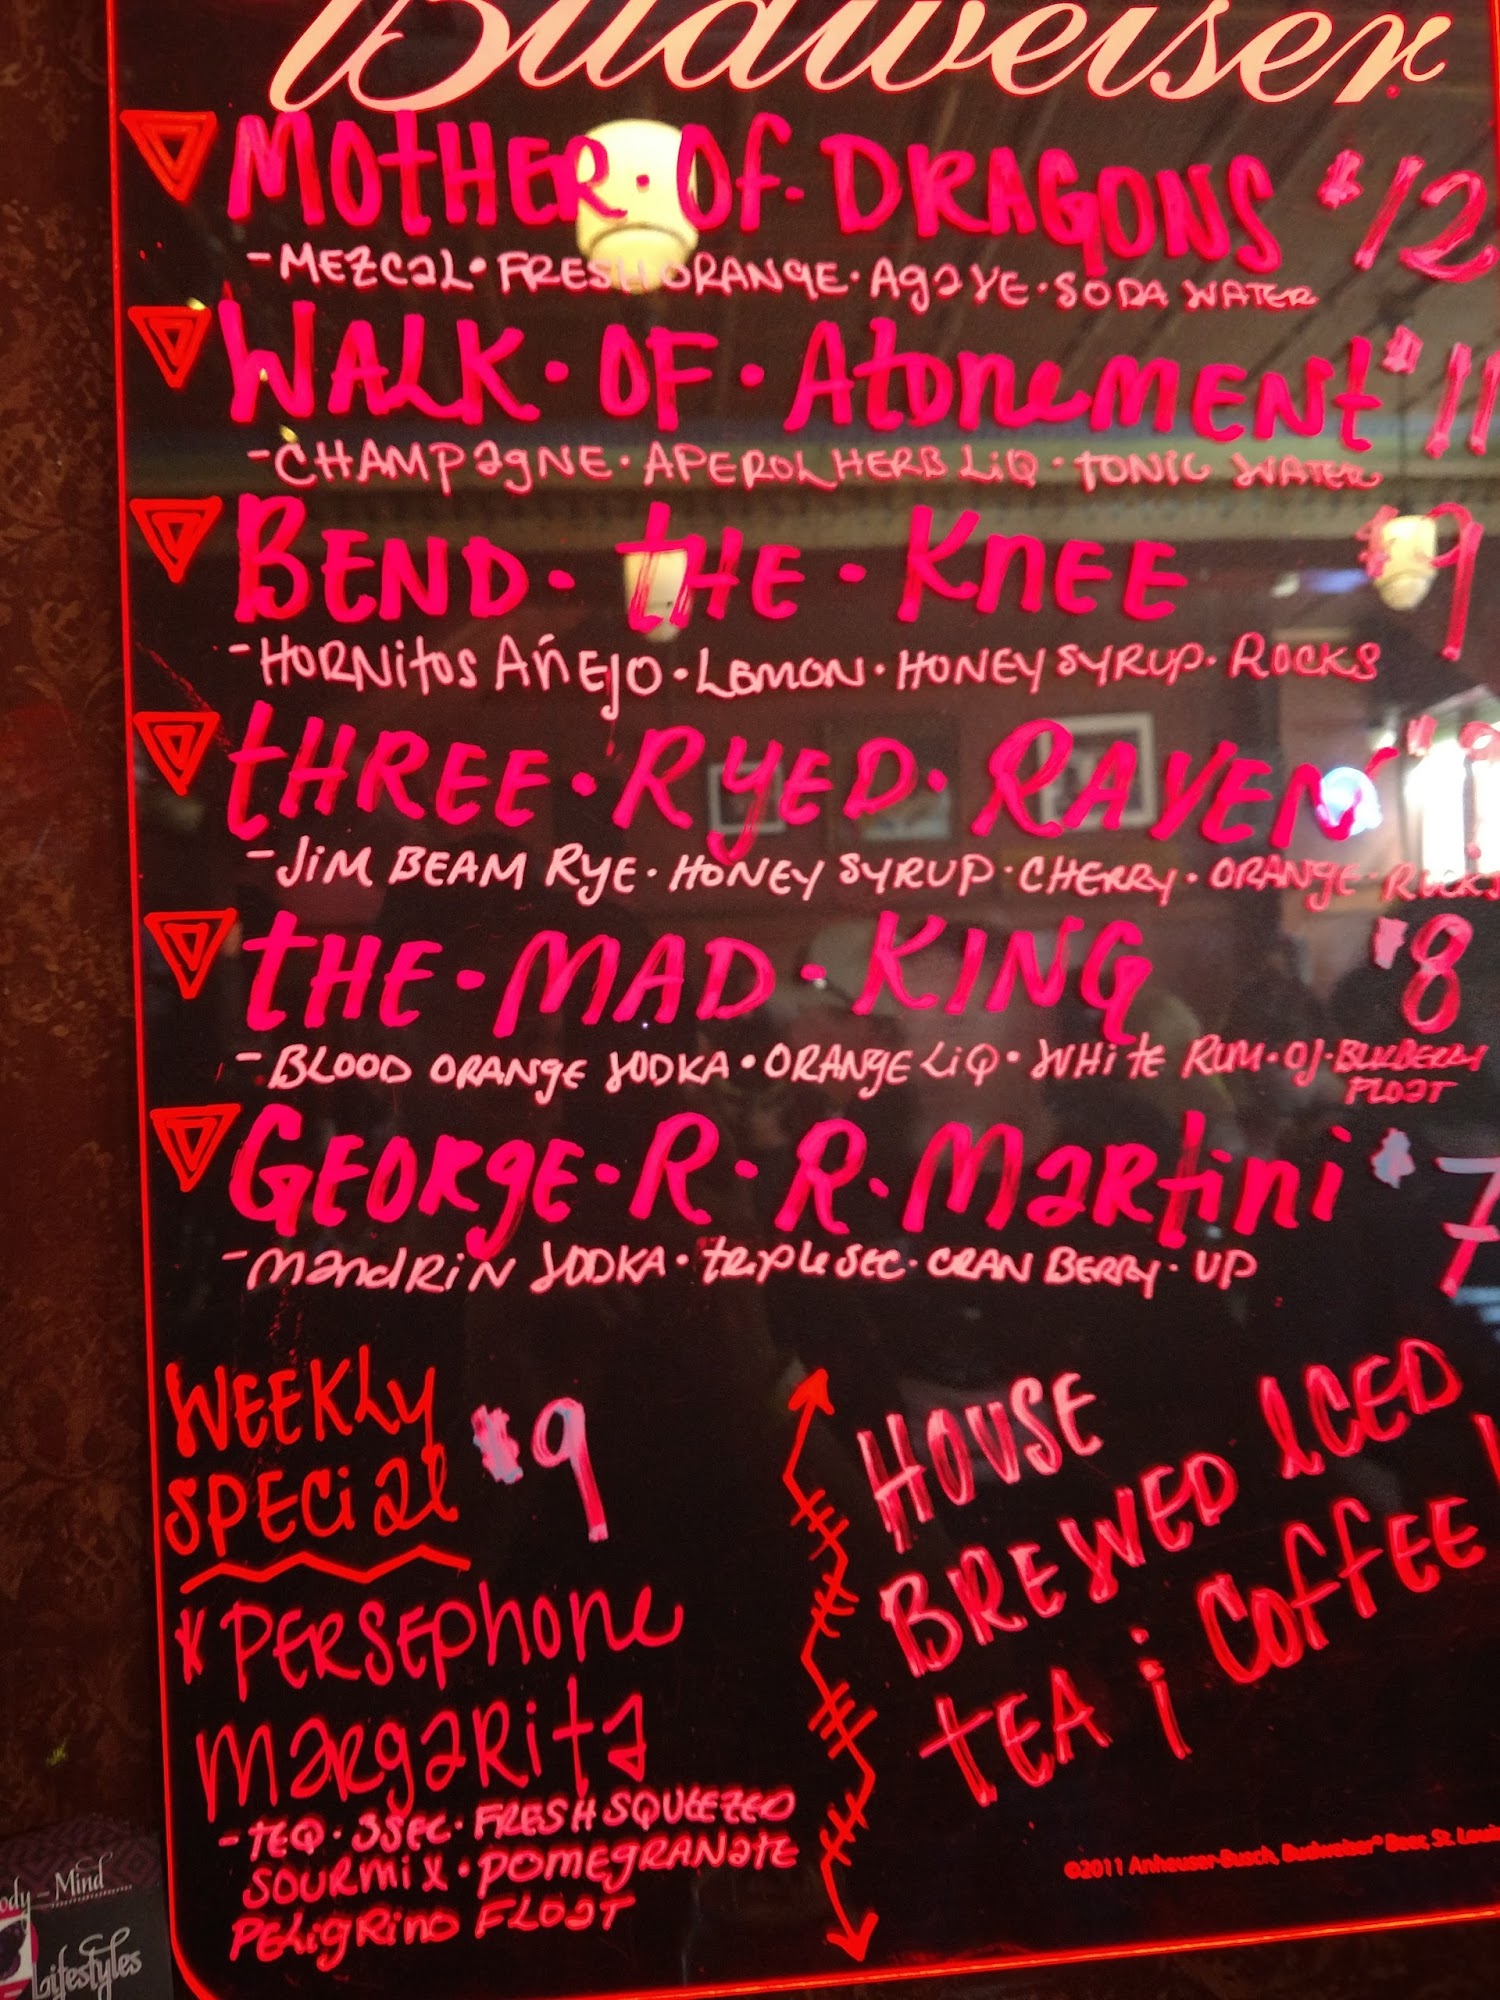 Budweiser
MOTHER · Of · DRAGONS $12
- MEZCAL · FRESH ORANGE · AGAVE · SODA WATER
WALK · OF · AtONEMENt $11
- CHAMPAGNE · APEROL HERB LIQ · TONIC WATER
BEND · tHE · KNEE $9
- HORNitos AñEJO · LEMON · HONEY SYRUP · ROCKS
tHREE · RYED · RAVEN
- JiM BEAM RYE · HONEY SYRUP · CHERRY · ORANGE · ROCKS
tHE · MAD · KING $8
- BLOOD ORANGE VODKA · ORANGE LiQ · WHitE RUM · OJ ·
FLOAT
GEORGE · R · R · Martini $7
- MandRiN VODKA · tRiPLE SEC · CRANBERRY · UP
WEEKLY
SPECiAL $9
* PERSEPhone
MARGARita
- TEQ · 3SEC · FRESH SQUEEZED
SOURMiX · POMEGRANATE
PELIGRINO FLOAT
HOUSE
BREWED ICED
tEA ¡ COffEE
©2011 Anheuser-Busch, Budweiser® Beer, St. Louis
ody - Mind
Lifestyles